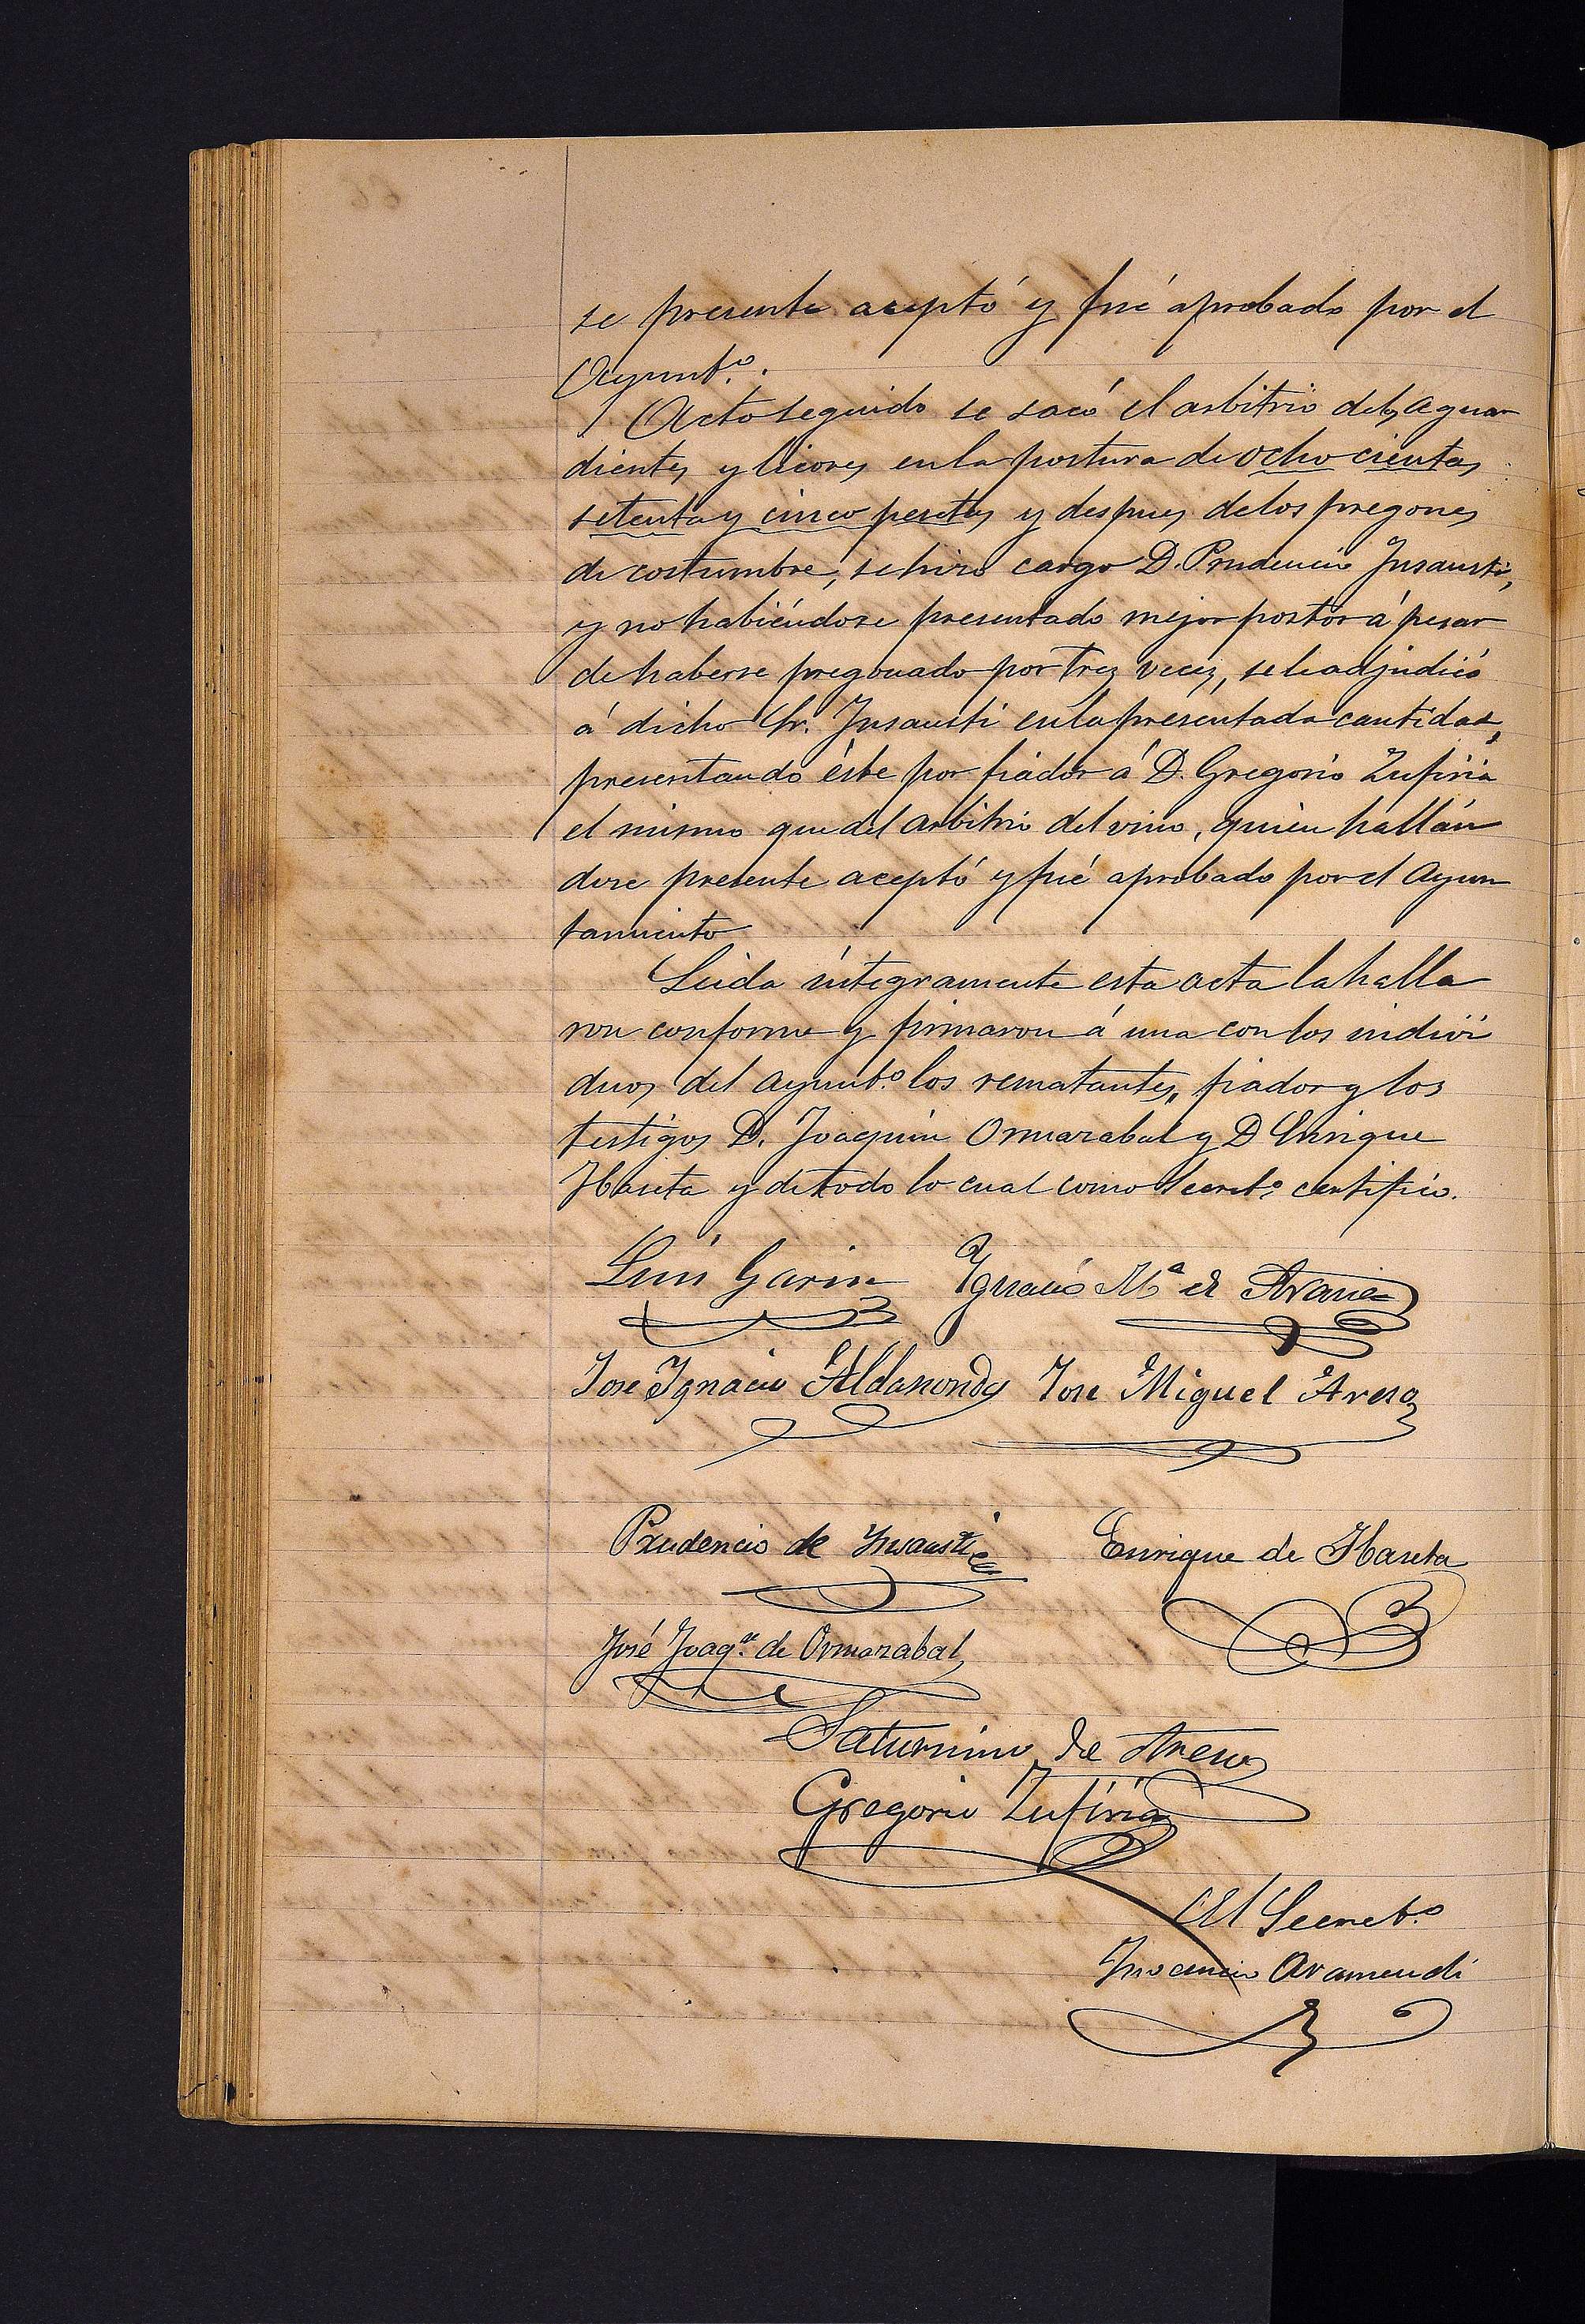 se presente aceptó y fué aprobado por el
Ayunt.º.
Acto seguido se sacó el arbitrio de los aguar
dientes y licores en la postura de ocho cientas
setenta y cinco pesetas y despues de los pregones
de costumbre, se hizo cargo D. Prudencio Insausti,
y no habiéndose presentado mejor postor á pesar
de haberse pregonado por tres veces, se le adjudicó
á dicho Sr. Insausti en la presentada cantidad,
presentando éste por fiador á D. Gregorio Zufiria
el mismo que del arbitrio del vino, quien hallán
dose presente aceptó y fué aprobado por el Ayun
tamiento
Leida íntegramente esta acta la halla
ron conforme y firmaron á una con los indivi
duos del ayunt.º los rematantes, fiador y los
testigos D. Joaquin Ormazabal y D Enrique
Ibaseta y de todo lo cual como Secret.º certifico.
Luis Garin Ignacio Mª de
Jose Ignacio Aldanondo Jose Miguel Areso
Prudencio de Insausti Enrique de Ibaseta
José Joaqn. de Ormazabal
Saturnino de Areso
Gregorio Zufiria
El Secret.º
Inocencio Aramendi